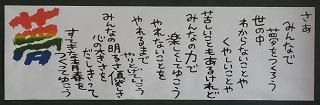 夢
さあ
みんなで
夢をつくろう
世の中
わからないことや
くやしいことや
苦しいこともあるけれど
みんなの力で
楽しくしてゆこう
やれないことを
やれるまで
やりとげていこう
みんなの明るさ優しさ
心の大きさを
だしきって
すてきな青春を
つくってゆこう